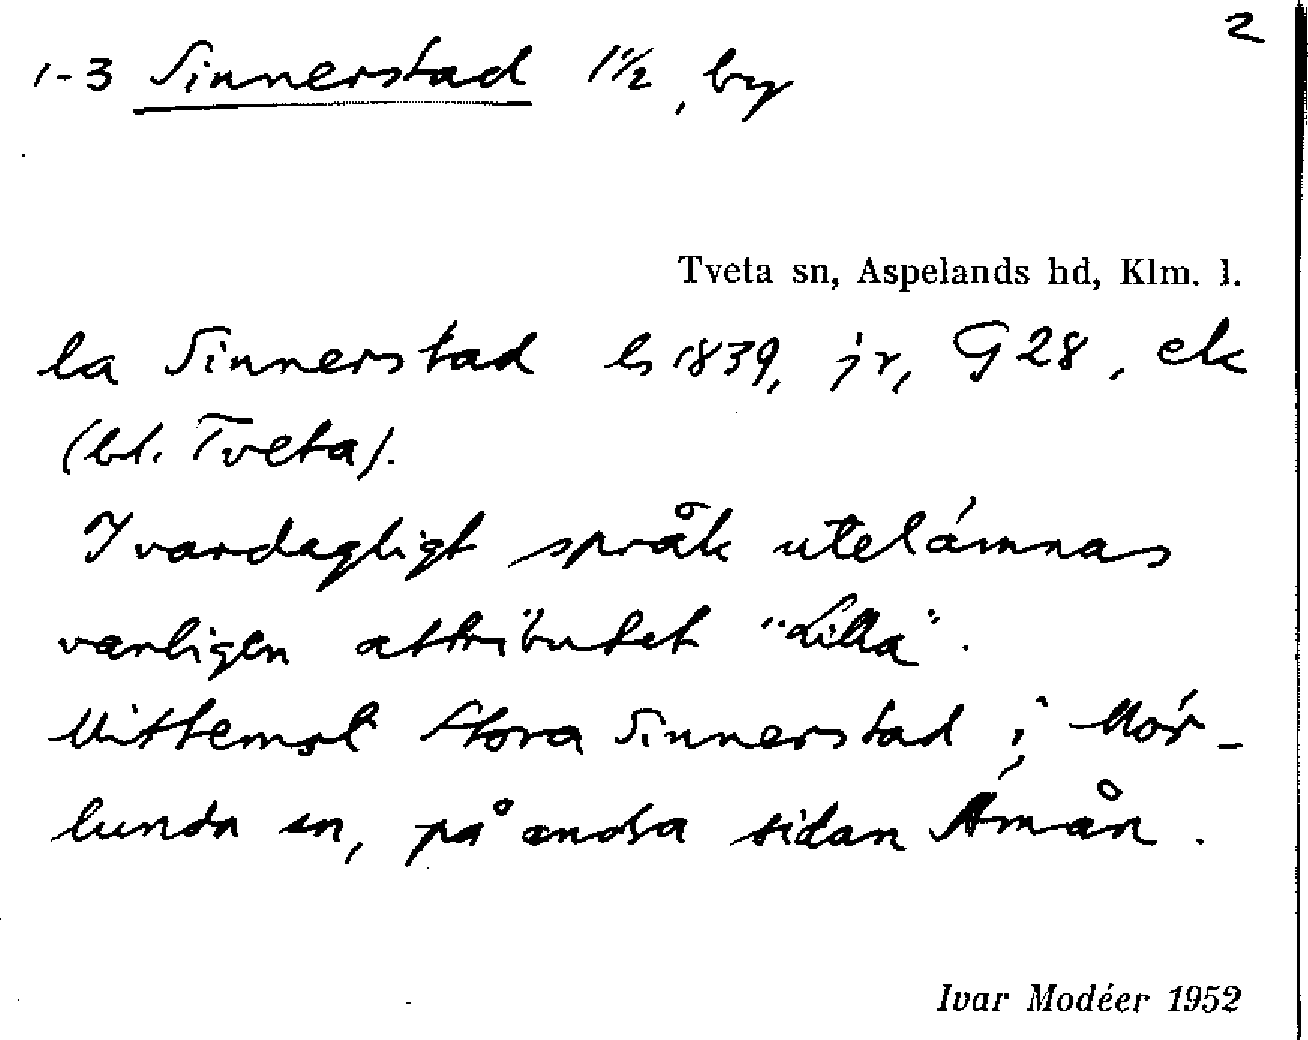 2
1-3 Sinnerstad 1 1/2, by
Tveta sn, Aspelands hd, Klm. l.
la Sinnerstad ls 1839, jr, G 28, ek
(bl. Tveta).
I vardagligt språk utelämnas
vanligen attributet "Lilla".
Mittemot Stora Sinnerstad i Mör-
lunda sn, på andra sidan Emån.
Ivar Modéer 1952